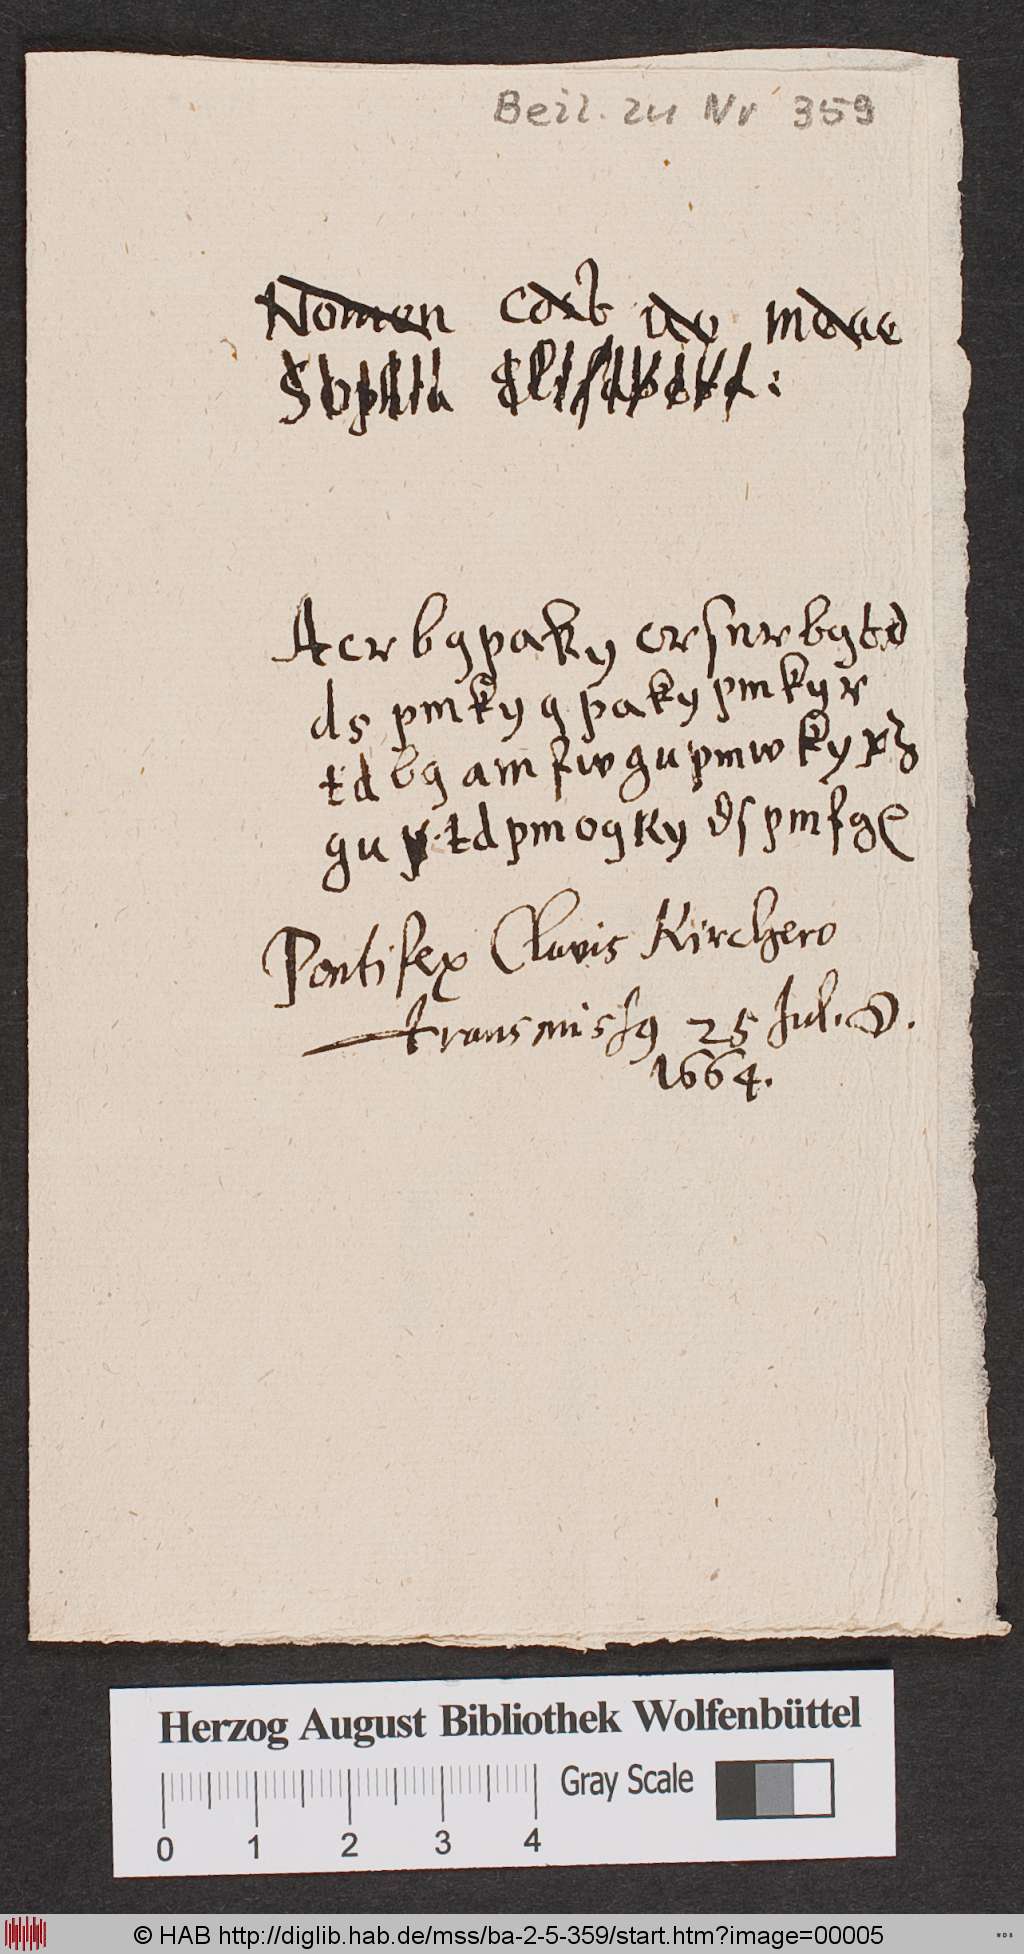 Beil. zu Nr 359
Nomen
Sophia Elisabeth:
Acrbgpaky orsnrbgtd
ds pmkyg paky pmkyr
td bg am fwgupmw ky
gu tdpmogky ds pmfg
Pontifex Clavis Kirchero
transmissg 25 Jul. S.
1664.
Herzog August Bibliothek Wolfenbüttel
Gray Scale
0 1 2 3 4
© HAB http://diglib.hab.de/mss/ba-2-5-359/start.htm?image=00005